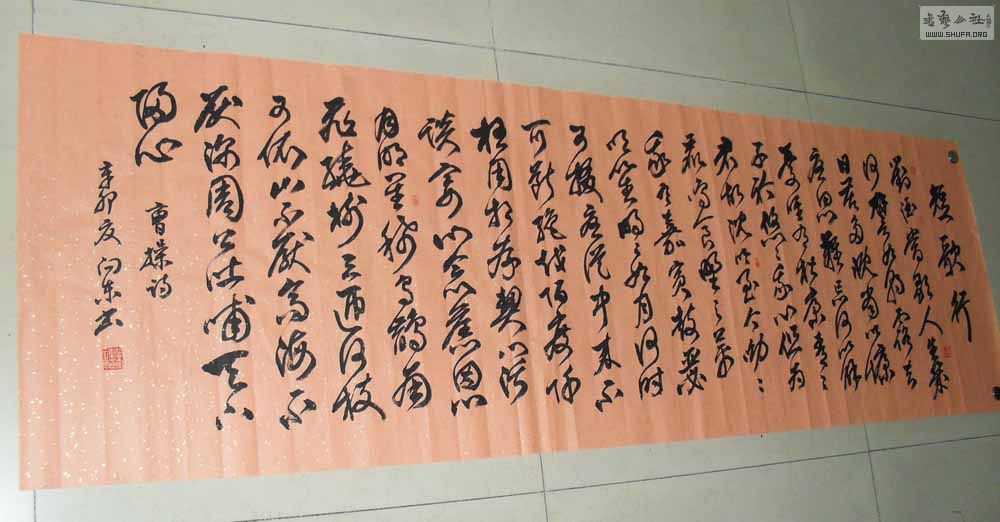 短歌行
對酒當歌人生幾
何譬如朝露去
日苦多慨當以慷
憂思難忘何以解
憂唯有杜康青〻
子衿悠〻我心但為
君故沈吟至今呦〻
鹿鳴食野之苹
我有嘉賓鼓瑟
吹笙明〻如月何時
可掇憂從中來不
可斷絕越陌度阡
枉用相存契闊
談宴心念舊恩
月明星稀烏鵲南
飛繞樹三匝何枝
可依山不厭高海不
厭深周公吐哺天下
歸心
曹操詩
辛卯夏向東書
書藝公社
WWW.SHUFA.ORG